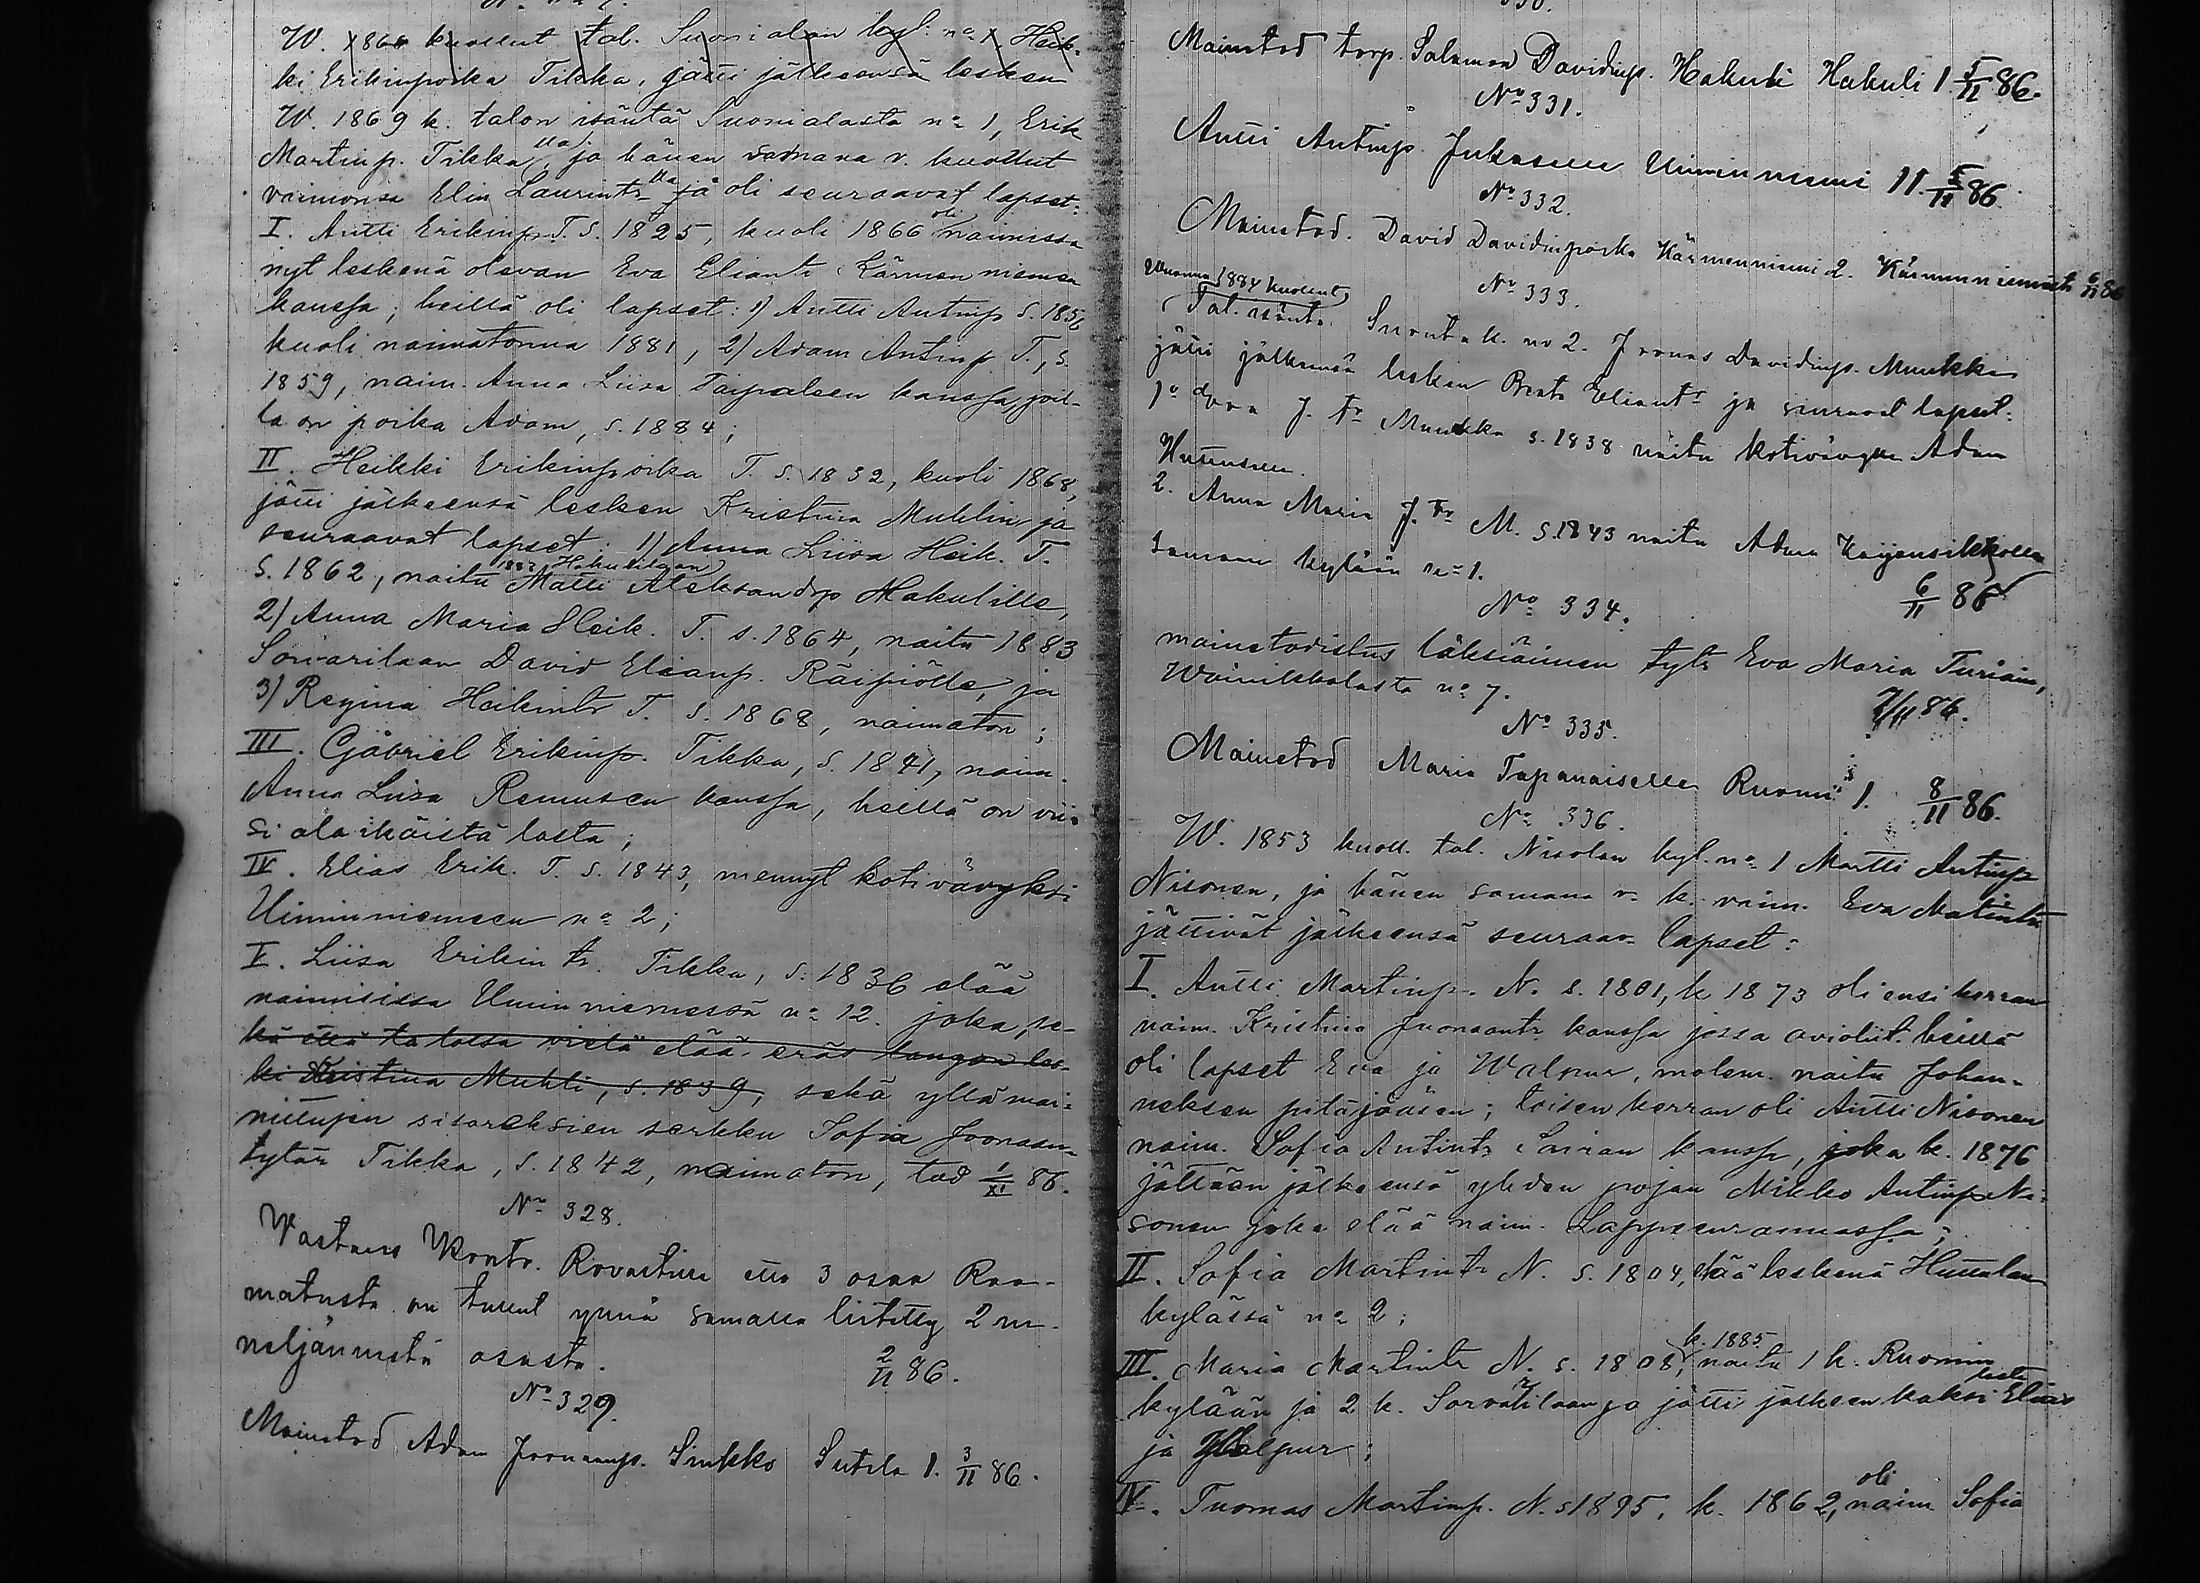 W. 1868 kuollut tal. Suonialan kyl. nº 1 Heik-
ki Erikinpoika Tikka, jätti jälkeensä lesken
W. 1869 k. talon isäntä Suonialasta nº 1, Erik
Martinp. Tikka lla, ja hänen samana v. kuollut
vaimonsa Elin Laurintr lla jä oli seuraavat lapset:
I. Antti Erikinp. T. s. 1825, kuoli 1866 oli naimissa
nyt leskenä olevan Eva Eliantr Kärmenniemen
kanssa; heillä oli lapset: 1) Antti Antinp. s. 1856
kuoli naimatonna 1881, 2) Adam Antinp. T., s.
1859, naim. Anna Liisa Taipalsen kanssa, joil-
la on poika Adam, s. 1884;
II. Heikki Erikinpoika T. s. 1832, kuoli 1868,
jätti jälkeensä lesken Kristina Muhlin ja
seuraavat lapset: 1) Anna Liisa Heik. T.
s. 1862, naitu 1882 Hakulilaan Matti Aleksandrp Hakulille,
2) Anna Maria Heik. T. s. 1864, naitu 1883
Sorvarilaan David Elianp. Räipiölle, ja
3) Regina Heikintr T. s. 1868, naimaton;
III. Gabriel Erikinp. Tikka, s. 1841, naim.
Anna Liisa Remusen kanssa, heillä on vii-
si ala ikäistä lasta;
IV. Elias Erik. T. s. 1843, mennyt kotivävyksi
Uiminniemeen nº 2;
V. Liisa Erikin tr. Tikka, s. 1836 elää
naimisissa Uiminniemessä nº 12. joka pe-
kä että talossa vielä elää eräs langon les-
ki Kristina Muhli, s. 1839, sekä yllä mai-
nittujen sisaruksien serkku Sofia Joonaan-
tytär Tikka, s. 1842, naimaton, tod 1/XI 86.
Nº 328.
Vastaus Kontr. Rovastille että 3 osaa Raa-
matusta on tullut ynnä samalla liitetty 2 m.
neljännestä osasta. 2/11 86.
Nº 329.
Mainetod Adam Joonaanp. Sinkko Sutela 1. 3/11 86.
330.
Mainetod torp. Salomon Davidinp. Hakuli Hakuli 1 5/11 86.
Nº 331.
Antti Antinp. Jukasellen Uiminniemi 11. 5/11 86.
Nº 332.
Mainetod. David Davidinpoika Kärmenniemi 2. Kärmenniemestä 6/11 86
Nº 333.
Wuonna 1884 kuollut
Tal. isäntä. Suontak. no 2. Joonas Davidinp. Muukka
jätti jälkeensä lesken Beata Eliantr ja seuraavat lapset:
1º Eva J. tr Muukka s. 1838 naitu kotivävyn Adam
Huttunsen.
2. Anna Maria J. tr M. s. 1843 naitu Adam Keijonsikkolla
samaan kylään nº 1. 6/11 86
Nº 334.
mainetodistus läksiäimen tytr Eva Maria Turiain,
Wainikkalasta nº 7. 7/11 86.
Nº 335.
Mainetod Maria Tapanaiselle Ruomi 1. 8/11 86.
Nº 336.
W. 1853 kuoll. tal. Nisolan kyl. nº 1 Martti Antinp
Nisonen, ja hänen samana v. k. vaim. Eva Matintr
jättivät jälkeensä seuraav. lapset:
I. Antti Martinp. N. s. 1801, k 1873 oli ensi kerran
naim. Kristina Juonaantr kanssa jossa avioliit. heillä
oli lapset Eva ja Walpur, molem. naitu Johan-
neksen pitäjääsen; toisen kerran oli Antti Nisonen
naim. Sofia Antintr Sairan kanssa, joka k. 1876
jättäen jälkeensä yhden pojan Mikko Antinp Ni-
sonen joka elää naim. Lappeenrannassa;
II. Sofia Martintr N. s. 1804, elää leskenä Huttulan
kylässä nº 2;
III. Maria Martintr N. s. 1808, k. 1885 naitu 1 k. Ruomin
kylään ja 2 k. Sorvarilaan ja jätti jälkeen kaksi lasta Elias
ja Walpur;
IV. Tuomas Martinp. N. s 1895, k. 1862, oli naim Sofia